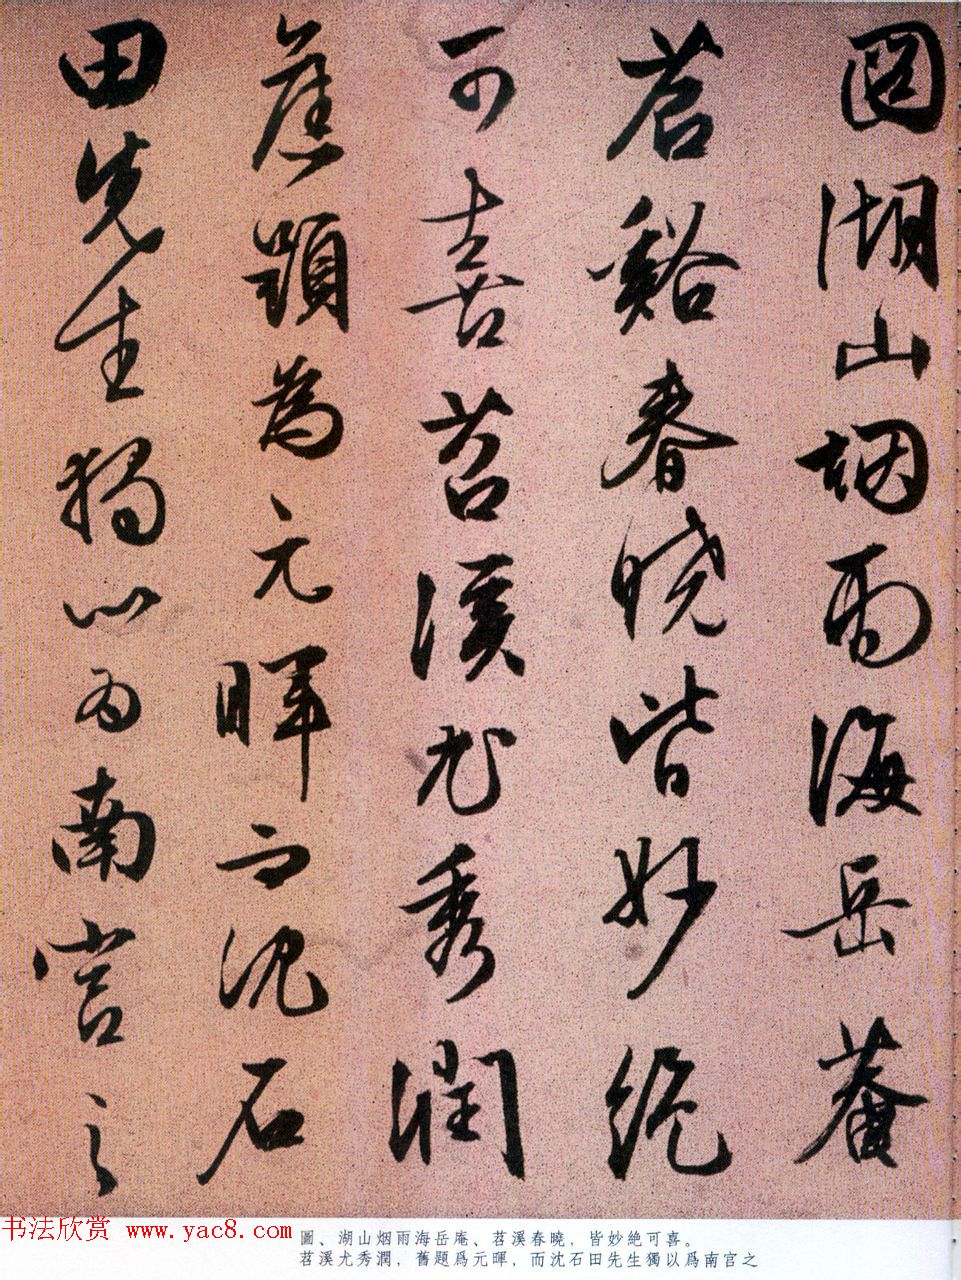 圖湖山烟雨海岳菴
苕谿春曉皆妙絶
可喜苕溪尤秀潤
舊題為元暉而沈石
田先生獨以为南宫之
圖、湖山烟雨海岳庵、苕溪春曉，皆妙絶可喜。
苕溪尤秀潤，舊題爲元暉，而沈石田先生獨以爲南宫之
书法欣赏 www.yac8.com